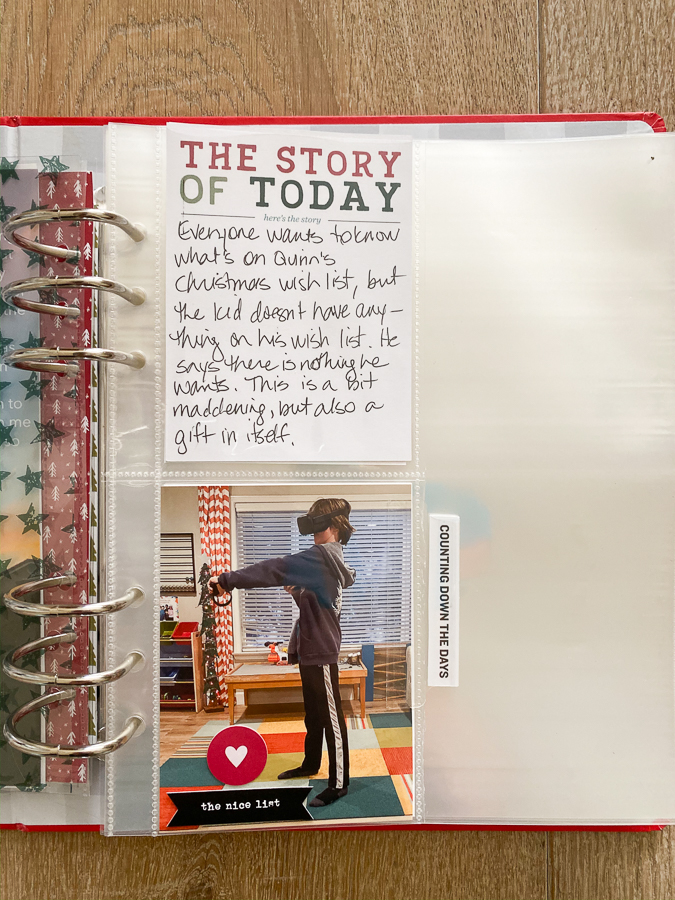 THE STORY
OF TODAY
here's the story
Everyone wants to know
what's on Quinn's
Christmas wish list, but
the kid doesn't have any-
thing on his wish list. He
says there is nothing he
wants. This is a bit
maddening, but also a
gift in itself.
COUNTING DOWN THE DAYS
the nice list
to
me